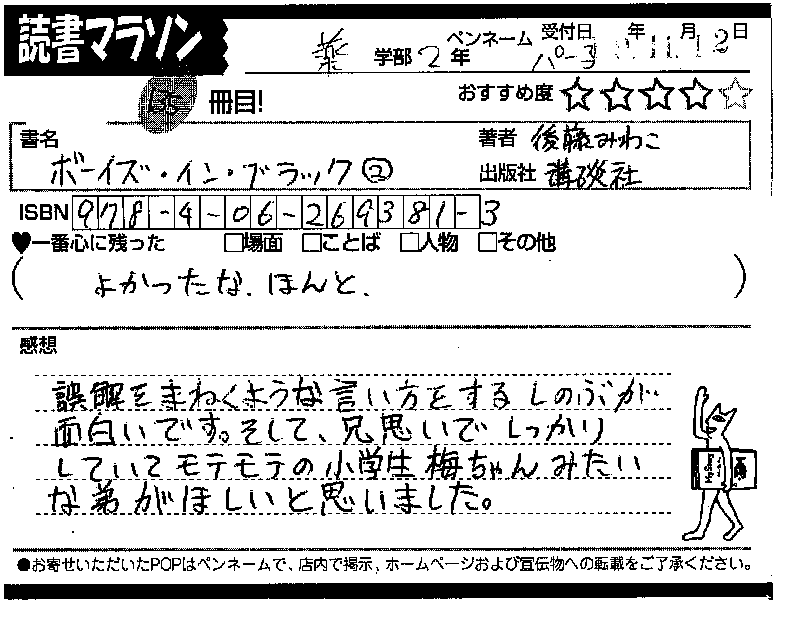 読書マラソン
受付日 年 11月12日
薬 学部 2年 ペンネーム パー子
135 冊目!
おすすめ度 ☆☆☆☆☆
書名 著者 後藤みわこ
ボーイズ・イン・ブラック② 出版社 講談社
ISBN 978-4-06-269381-3
♥一番心に残った □場面 □ことば □人物 □その他
( よかったな、ほんと、 )
感想
誤解をまねくような言い方をするしのぶが
面白いです。そして、兄思いでしっかり
していてモテモテの小学生梅ちゃんみたい
な弟がほしいと思いました。
●お寄せいただいたPOPはペンネームで、店内で掲示, ホームページおよび宣伝物への転載をご了承ください。